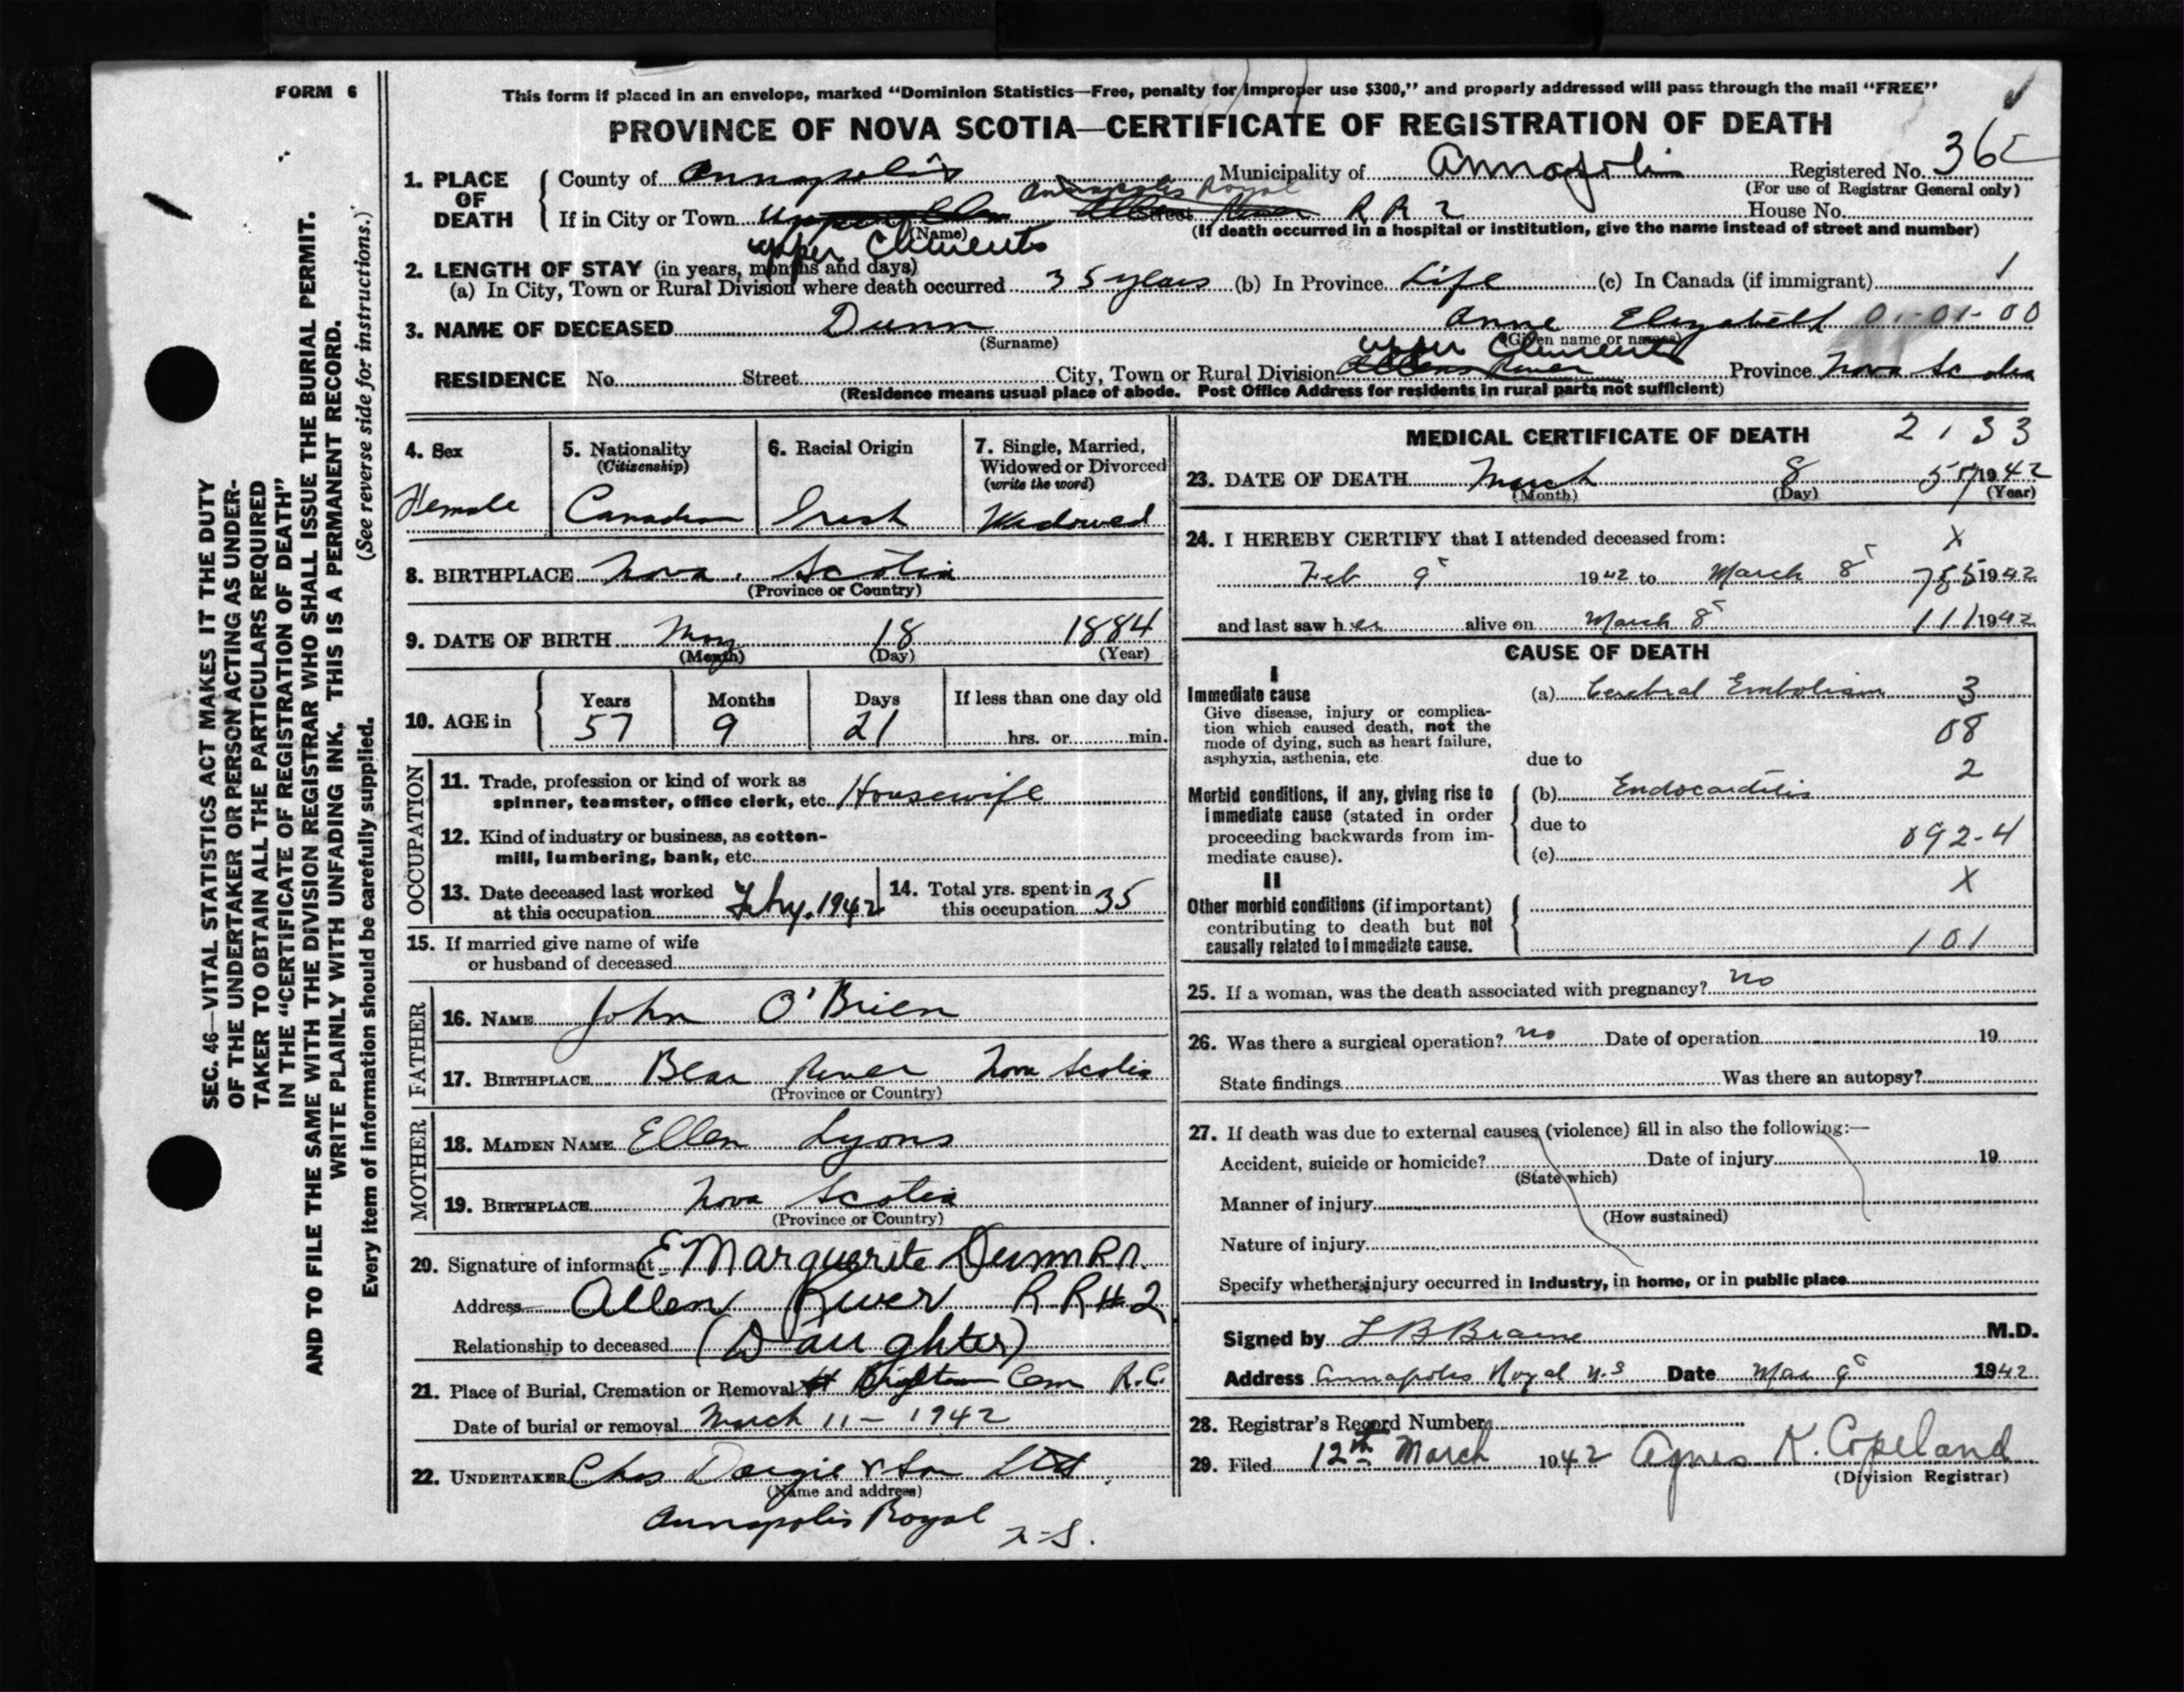 FORM 6
This form if placed in an envelope, marked “Dominion Statistics—Free, penalty for improper use $300,” and properly addressed will pass through the mail “FREE”
PROVINCE OF NOVA SCOTIA—CERTIFICATE OF REGISTRATION OF DEATH
1. PLACE OF DEATH
County of Annapolis Municipality of Annapolis Registered No. 365
(For use of Registrar General only)
Annapolis Royal
If in City or Town Upper Street River R R 2 House No.
(Name) (If death occurred in a hospital or institution, give the name instead of street and number)
Upper Clements
2. LENGTH OF STAY (in years, months and days)
(a) In City, Town or Rural Division where death occurred 35 years (b) In Province Life (c) In Canada (if immigrant)
3. NAME OF DECEASED Dunn Anne Elizabeth 01-01-00
(Surname) (Given name or names)
Upper Clements
RESIDENCE No. Street City, Town or Rural Division Allens River Province Nova Scotia
(Residence means usual place of abode. Post Office Address for residents in rural parts not sufficient)
4. Sex
Female
5. Nationality
(Citizenship)
Canadian
6. Racial Origin
Irish
7. Single, Married,
Widowed or Divorced
(write the word)
Widowed
8. BIRTHPLACE Nova Scotia
(Province or Country)
9. DATE OF BIRTH May 18 1884
(Month) (Day) (Year)
10. AGE in
Years Months Days If less than one day old
57 9 21 hrs. or min.
OCCUPATION
11. Trade, profession or kind of work as
spinner, teamster, office clerk, etc. Housewife
12. Kind of industry or business, as cotton-
mill, lumbering, bank, etc.
13. Date deceased last worked
at this occupation Febry. 1942
14. Total yrs. spent in
this occupation 35
15. If married give name of wife
or husband of deceased
FATHER
16. NAME John O'Brien
17. BIRTHPLACE Bear River Nova Scotia
(Province or Country)
MOTHER
18. MAIDEN NAME Ellen Lyons
19. BIRTHPLACE Nova Scotia
(Province or Country)
20. Signature of informant E Marguerite Dunn R.N.
Address Allen River R R # 2
Relationship to deceased (Daughter)
21. Place of Burial, Cremation or Removal Cem R.C.
Date of burial or removal March 11 - 1942
22. UNDERTAKER Chas Dargie & Son Ltd
(Name and address)
Annapolis Royal
N-S.
MEDICAL CERTIFICATE OF DEATH 2133
23. DATE OF DEATH March 8 57 1942
(Month) (Day) (Year)
24. I HEREBY CERTIFY that I attended deceased from: X
Feb 9 1942 to March 8 755 1942
and last saw her alive on March 8 111 1942
CAUSE OF DEATH
I
Immediate cause
Give disease, injury or complica-
tion which caused death, not the
mode of dying, such as heart failure,
asphyxia, asthenia, etc.
(a) Cerebral Embolism 3
08
due to
2
Morbid conditions, if any, giving rise to
immediate cause (stated in order
proceeding backwards from im-
mediate cause).
(b) Endocarditis
due to
092-4
(c)
II
X
Other morbid conditions (if important)
contributing to death but not
causally related to immediate cause.
101
25. If a woman, was the death associated with pregnancy? no
26. Was there a surgical operation? no Date of operation 19
State findings Was there an autopsy?
27. If death was due to external causes (violence) fill in also the following:—
Accident, suicide or homicide? Date of injury 19
(State which)
Manner of injury
(How sustained)
Nature of injury
Specify whether injury occurred in industry, in home, or in public place
Signed by L B Braine M.D.
Address Annapolis Royal N.S Date Mar 9 1942
28. Registrar's Record Number
29. Filed 12th March 1942 Agnes K. Copeland
(Division Registrar)
SEC. 46—VITAL STATISTICS ACT MAKES IT THE DUTY
OF THE UNDERTAKER OR PERSON ACTING AS UNDER-
TAKER TO OBTAIN ALL THE PARTICULARS REQUIRED
IN THE “CERTIFICATE OF REGISTRATION OF DEATH”
AND TO FILE THE SAME WITH THE DIVISION REGISTRAR WHO SHALL ISSUE THE BURIAL PERMIT.
WRITE PLAINLY WITH UNFADING INK. THIS IS A PERMANENT RECORD.
Every item of information should be carefully supplied. (See reverse side for instructions.)